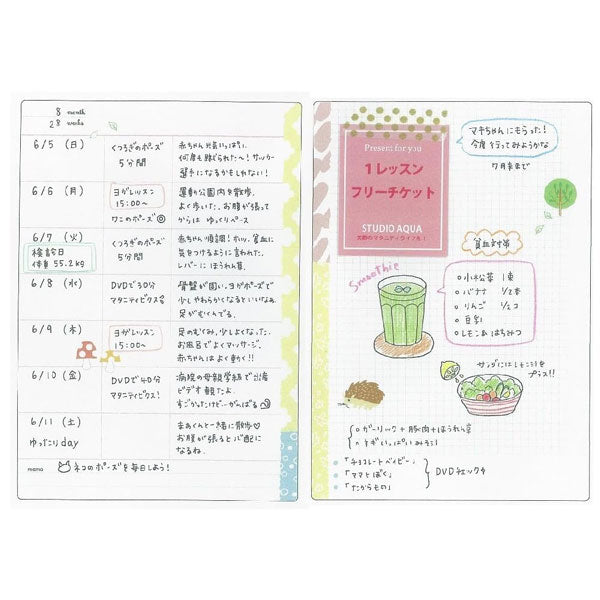 8 month
28 weeks
6/5 (日)
くつろぎのポーズ
5分間
赤ちゃん元気いっぱい。
何度も蹴られた〜! サッカー
選手になるかもしれない!
6/6 (月)
ヨガレッスン
15:00〜
ワニのポーズ◎
運動公園内を散歩。
よく歩いた。お腹が張って
からは ゆっくりペース
6/7 (火)
検診日
体重 55.2kg
くつろぎのポーズ
5分間
赤ちゃん順調!
貧血に
気をつけるように言われた。
レバーに ほうれん草。
6/8 (水)
DVDで30分
マタニティビクス
骨盤が固い。ヨガポーズで
少しやわらかくなるといいなぁ。
足がむくんでる。
6/9 (木)
ヨガレッスン
15:00〜
足のむくみ、少しよくなった。
お風呂でよくマッサージ。
赤ちゃんはよく動く!!
6/10 (金)
DVDで40分
マタニティビクス!
病院の母親学級で出産
ビデオ観たよ。
すごかったけど…がんばる
6/11 (土)
ゆったりday
まあくんと一緒に散歩♡
お腹が張ると心配に
なるね。
memo
ネコのポーズを毎日しよう!
Present for you
1レッスン
フリーチケット
STUDIO AQUA
マキちゃんにもらった!
今度行ってみようかな
7月末まで
貧血対策
Smoothie
○小松菜 1束
○バナナ 1/2本
○りんご 1/2コ
○豆乳
○レモン&はちみつ
サラダにはレモン汁を
プラス!!
○ガーリック+豚肉+ほうれん草
「チョコレートベイビー」
「ママとぼく」
「たからもの」
DVDチェック